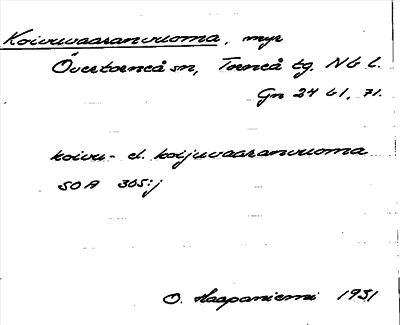 Koivuvaaranvuoma, myr
Övertorneå sn, Torneå tg. Nb l.
Gn 24 61, 71.
koivu- el. koijuvaaranvuoma
SOA 305:j
O. Haapaniemi 1931